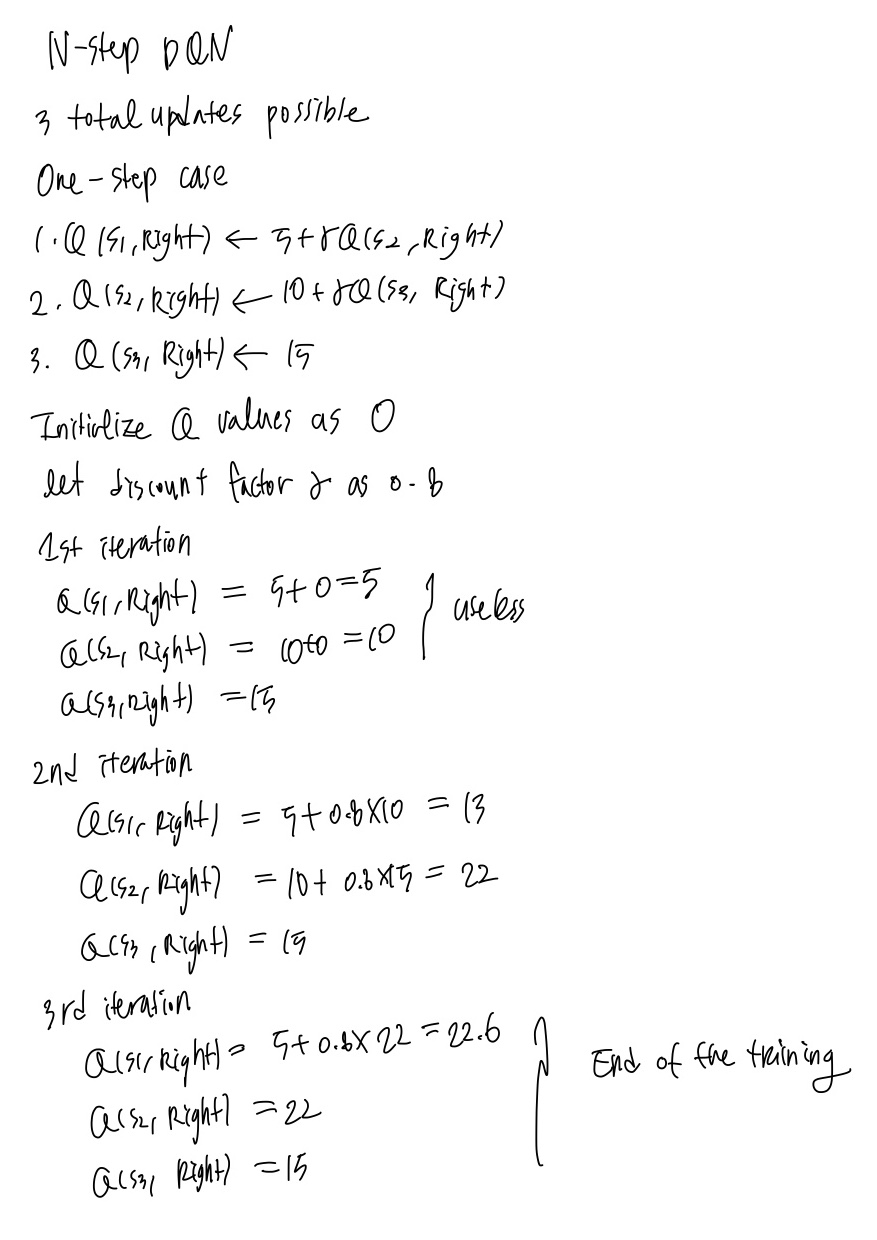 N-step DQN
3 total updates possible
One-step case
1. Q(S1, Right) ← 5+γQ(S2, Right)
2. Q(S2, Right) ← 10+γQ(S3, Right)
3. Q(S3, Right) ← 15
Initialize Q values as 0
let discount factor γ as 0.8
1st iteration
Q(S1, Right) = 5+0=5
Q(S2, Right) = 10+0=10
useless
Q(S3, Right) =15
2nd iteration
Q(S1, Right) = 5+0.8×10 = 13
Q(S2, Right) = 10+ 0.8×15 = 22
Q(S3, Right) = 15
3rd iteration
Q(S1, Right)= 5+0.8×22=22.6
Q(S2, Right) =22
End of the training
Q(S3, Right) =15